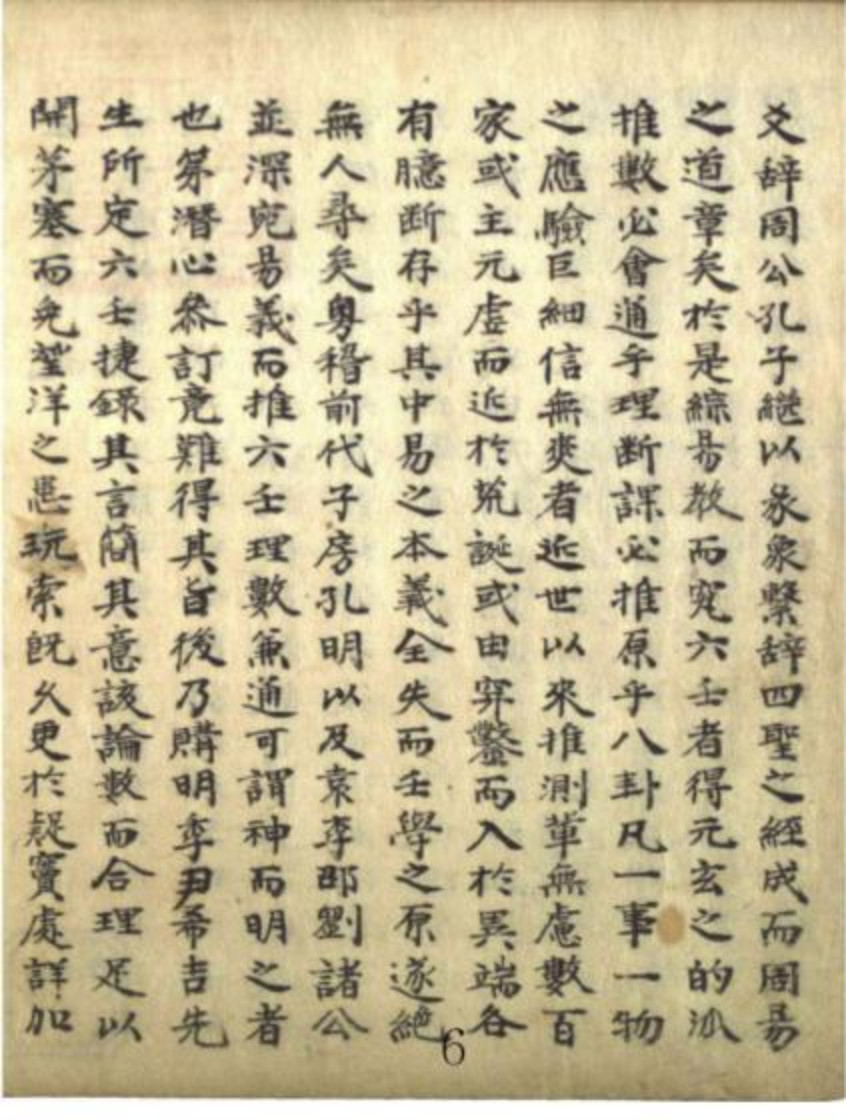 爻辞周公孔子繼以彖象繫辞四聖之經成而周易
之道章矣於是綜易教而究六壬者得元玄之的派
推數必會通乎理断課必推原乎八卦凡一事一物
之應驗巨細信無爽者近世以來推測軰無慮數百
家或主元虚而近於荒誕或由穿鑿而入於異端各
有臆断存乎其中易之本義全失而壬學之原遂絕
無人尋矣粤稽前代子房孔明以及袁李邵劉諸公
並深究易義而推六壬理數兼通可謂神而明之者
也茅潛心叅訂竟難得其旨後乃購明季尹希吉先
生所定六壬捷錄其言簡其意該論數而合理足以
開茅塞而免望洋之悪玩索旣久更於疑竇處詳加
6